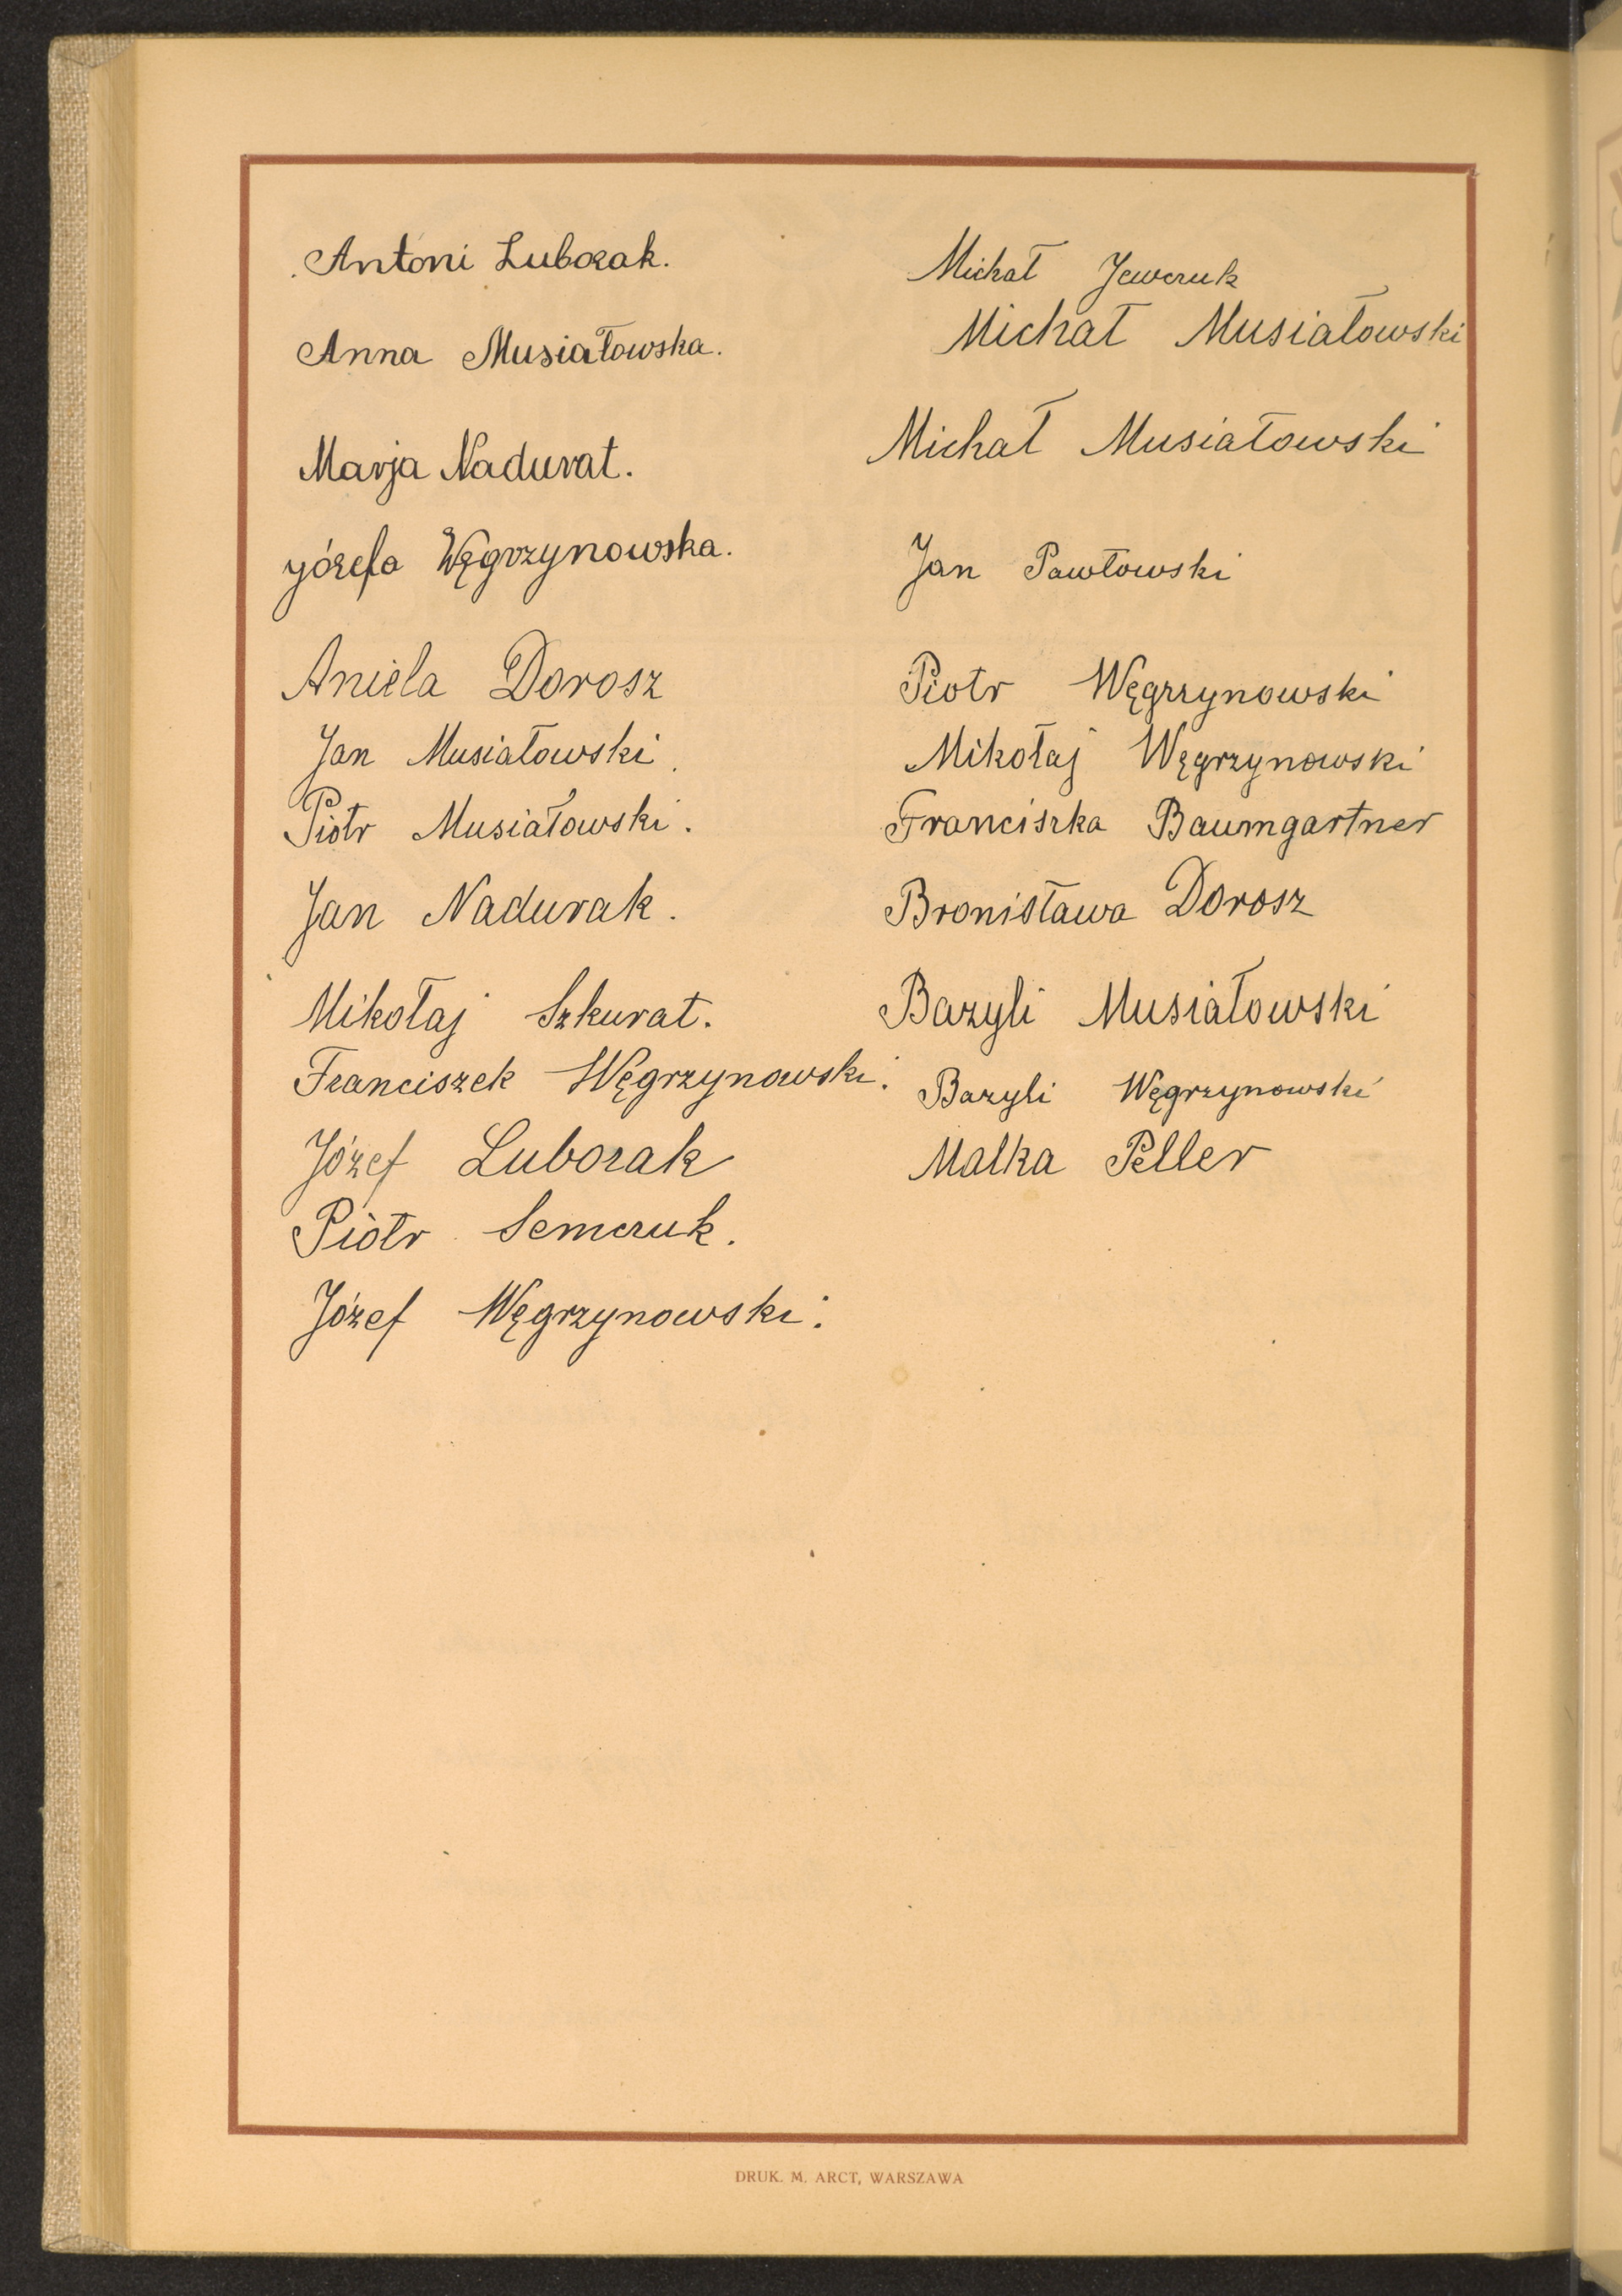 Antoni Luborak.
Anna Musiałowska.
Marja Nadurat.
Józefa Węgrzynowska.
Aniela Dorosz
Jan Musiałowski.
Piotr Musiałowski.
Jan Nadurak.
Mikołaj Szkurat.
Franciszek Węgrzynowski.
Józef Luborak
Piotr Semczuk.
Józef Węgrzynowski.
Michał Jewczuk
Michał Musiałowski
Michał Musiałowski
Jan Pawłowski
Piotr Węgrzynowski
Mikołaj Węgrzynowski
Franciszka Baumgartner
Bronisława Dorosz
Bazyli Musiałowski
Bazyli Węgrzynowski
Malka Peller
DRUK. M. ARCT, WARSZAWA